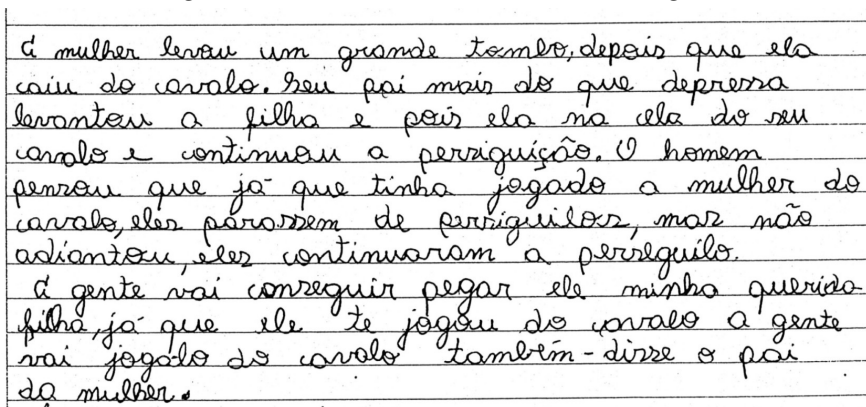 A mulher levou um grande tombo, depois que ela
caiu do cavalo. Seu pai mais do que depressa
levantou a filha e pois ela na cela do seu
cavalo e continuou a perziguição. O homem
penzou que já que tinha jogado a mulher do
cavalo, eles parassem de perziguilos, mas não
adiantou, eles continuaram a perzeguilo.
A gente vai conzeguir pegar ele minha querida
filha, já que ele te jogou do cavalo a gente
vai jogalo do cavalo também - disse o pai
da mulher.